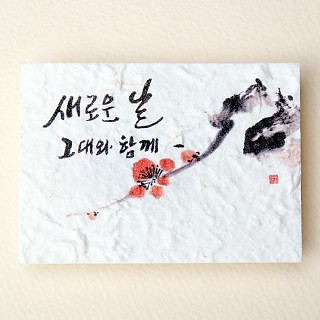 새로운 날
그대와 함께 -